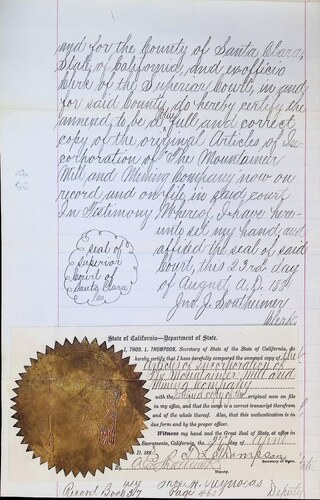 and for the County of Santa Clara,
State of California, and ex officio
Clerk of the Superior Court, in and
for said County, do hereby certify the
annexed to be a true full and correct
copy of the original Articles of In
corporation of The Mountaineer
Mill and Mining Company now on
record and on file in said court
In Testimony Whereof, I have here-
unto set my hand and
affixed the seal of said
Court, this 23rd day
of August A.D. 188
Jno. J. Sontheimer
Clerk
seal of
superior
court of
Santa Clara
Co.
State of California—Department of State.
I, THOS. L. THOMPSON, Secretary of State of the State of California, do
hereby certify that I have carefully compared the annexed copy of the
Articles of Incorporation of
The Mountaineer Mill and
Mining Company
with the original now on file
in my office, and that the same is a correct transcript therefrom
and of the whole thereof. Also, that this authentication is in
due form and by the proper officer.
Witness my hand and the Great Seal of State, at office in
Sacramento, California, the day of April
A. D. 188
Thompson
Secretary of State
Deputy.
Record Book 37 Page 460 Reynolds Deputy